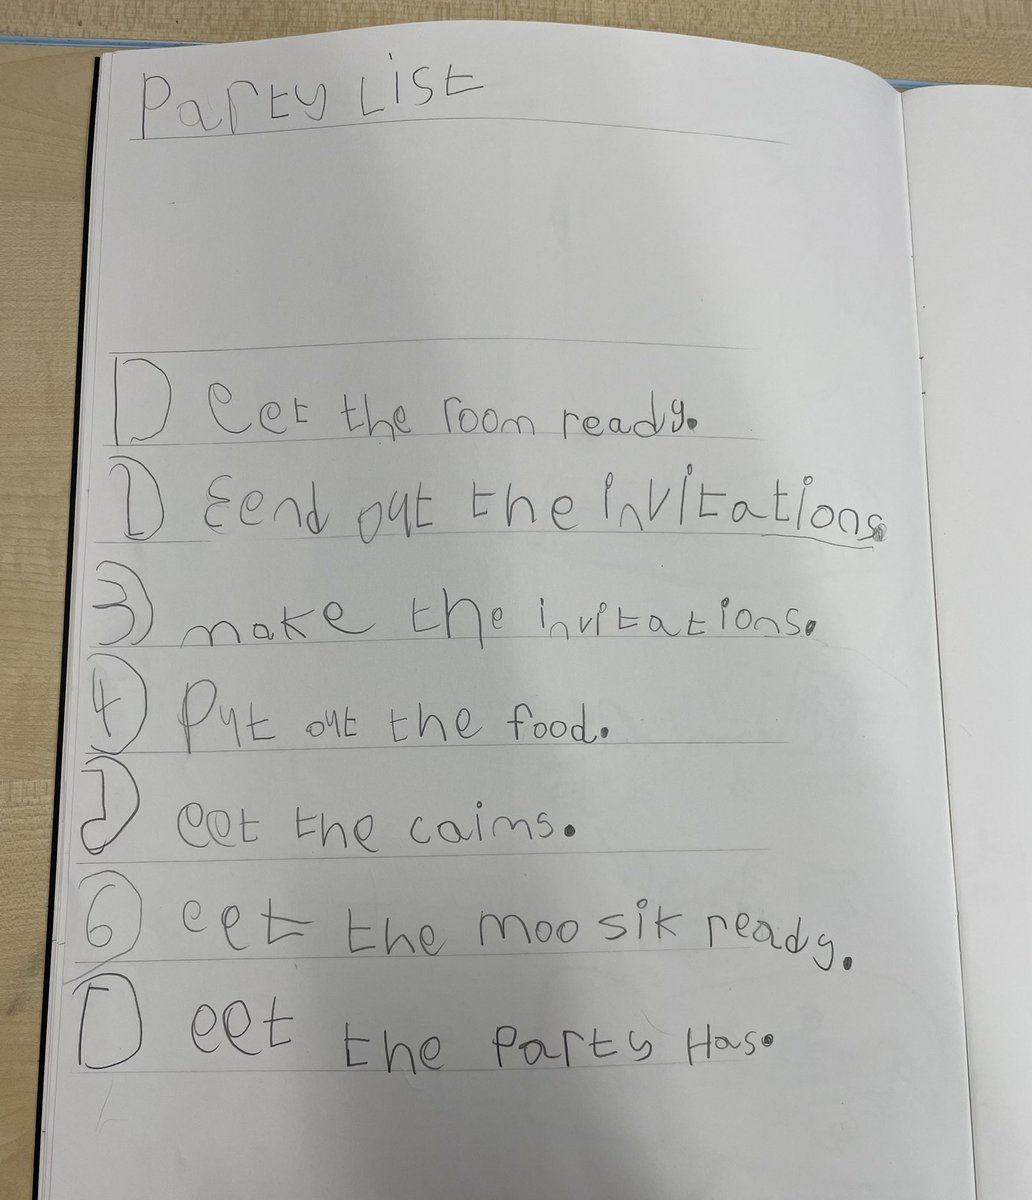 Party List
1) Get the room ready.
2) Send out the invitations.
3) make the invitations.
4) Put out the food.
5) get the caims.
6) get the moosik ready.
7) get the Party Has.